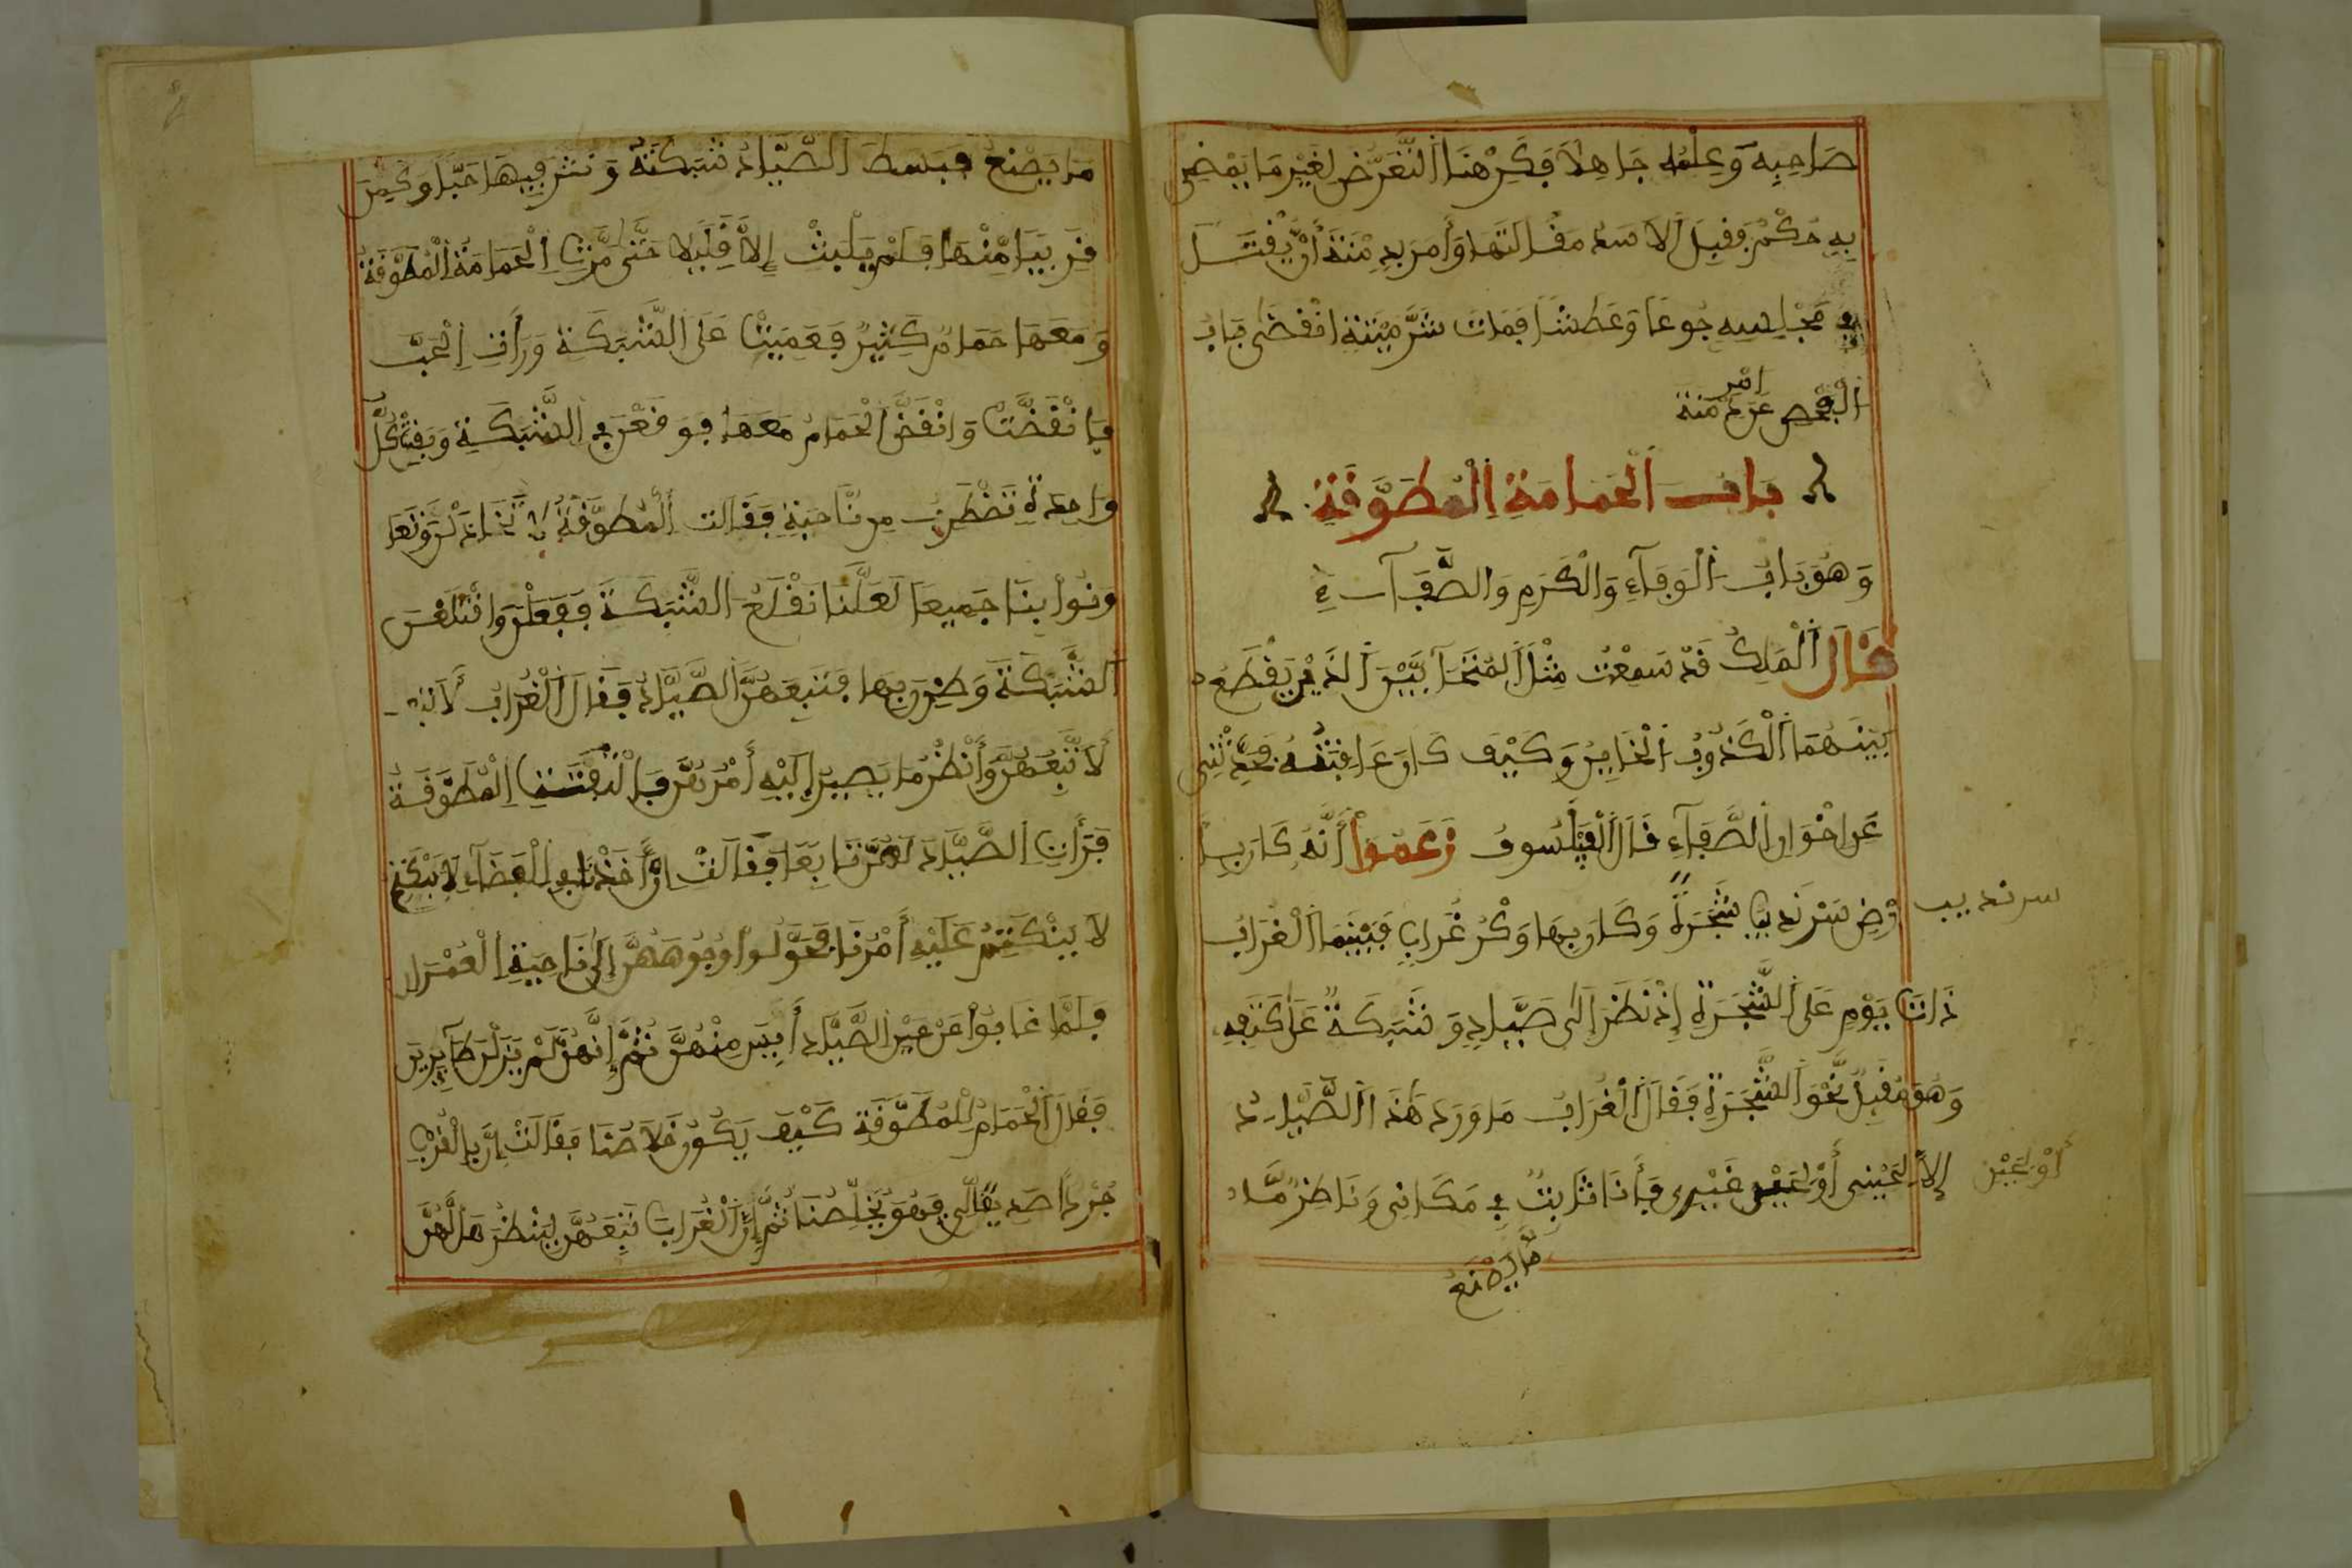 صَاحِبِهِ وَعِلْمُه جَاهِلًا فَكَرِهْنَا التَّعَرُّضَ لِغَيْرِ مَا يَمْضِى
بِهِ حُكْمُ فَقَبِلَ الاسَدُ مَقَالَتَهَا وَأَمَرَ بِدِمْنَةَ أَنْ يُقْتَلَ
فِي مَجْلِسِهِ جُوعًا وَعَطَشًا فَمَاتَ شَرَّ مِيتَةٍ انْقَضَى بَابُ
الْفَحْصِ عَنْ امْرِ دِمْنَةَ
بَابُ الْحَمَامَةِ الْمُطَوَّقَةِ
وَهُوَ بَابُ الْوَفَآءِ وَالْكَرَمِ وَالصَّفَآءِ
قَالَ الْمَلِكُ قَدْ سَمِعْتُ مِثْلَ الْمُتَحَآبَّيْنِ الَّذَيْنِ يَقْطَعُ
بَيْنَهُمَا الْكَذُوبُ الْخَايِنُ وَكَيْفَ كَانَ عَاقِبَتُهُ فَحَدِّثْنِى
عَنِ اخْوَانِ الصَّفَآءِ قَالَ الْفَيْلَسُوفُ زَعَمُوا أَنَّهُ كَانَ بِأَ
رْضِ سَرَنْدِيبَ شَجَرَةً وَكَانَ بِهَا وَكْرُ غُرَابٍ فَبَيْنَمَا الْغُرَابُ
سرنديب
ذَاتَ يَوْمٍ عَلَى الشَّجَرَةِ إِذْ نَظَرَ إِلَى صَيَّادٍ وَشَبَكَةٌ عَلَى كَتِفِهِ
وَهُوَ مُقْبِلٌ نَّحْوَ الشَّجَرَةِ فَقَالَ الْغُرَابُ مَا وَرَدَ هَذَا الصَّيَّادُ
إِلَّا لِحَيْنِى أَوْ لِحَيْنِ غَيْرِى فَأَنَا ثَابِتٌ فِي مَكَانِى وَنَاظِرٌ مَّا
أَوْ لِحَيْنِ
مَّا يَصْنَعُ
مَا يَصْنَعُ فَبَسَطَ الصَّيَّادُ شَبَكَتَهُ وَنَثَرَ فِيهَا حَبًّا وَكَمَنَ
قَرِيبًا مِّنْهَا فَلَمْ يَلْبَثْ إِلَّا قَلِيلًا حَتَّى مَرَّتِ الْحَمَامَةُ الْمُطَوَّقَةُ
وَمَعَهَا حَمَامٌ كَثِيرٌ فَعَمِيَتْ عَلَى الشَّبَكَةِ وَرَأَتِ الْحَبَّ
فَانْقَضَّتْ وَانْقَضَّ الْحَمَامُ مَعَهَا فَوَقَعْنَ فِي الشَّبَكَةِ وَبَقِيَتْ كُلُّ
وَاحِدَةٍ تَضْطَرِبُ مِن نَّاحِيَةٍ فَقَالَتِ الْمُطَوَّقَةُ لَا تَخَاذَلْنَ وَتَعَا
وَنُوا بِنَا جَمِيعًا لَعَلَّنَا نَقْلَعُ الشَّبَكَةَ فَفَعَلْنَ وَاقْتَلَعْنَ
الشَّبَكَةَ وَطِرْنَ بِهَا فَتَبِعَهُنَّ الصَّيَّادُ فَقَالَ الْغُرَابُ لَأَتَّبِـ
لَأَتَّبِعُهُنَّ وَأَنْظُرُ مَا يَصِيرُ إِلَيْهِ أَمْرُهُنَّ فَالْتَفَتَتِ الْمُطَوَّقَةُ
فَرَأَتِ الصَّيَّادَ لَهُنَّ تَابِعًا فَقَالَتْ إِنْ أَخَذْنَا فِي الْفَضَآءِ لَا يَنْكَتِمُ
لَا يَنْكَتِمُ عَلَيْهِ أَمْرُنَا فَحَوَّلُوا وُجُوهَهُنَّ إِلَى نَاحِيَةِ الْعُمْرَانِ
فَلَمَّا غَابُوا عَنْ عَيْنِ الصَّيَّادِ أَيِسَ مِنْهُنَّ ثُمَّ إِنَّهُنَّ لَمْ يَزَلْنَ طَآيِرِينَ
فَقَالَ الْحَمَامُ لِلْمُطَوَّقَةِ كَيْفَ يَكُونُ خَلَاصُنَا فَقَالَتْ إِنَّ بِالْقُرْبِ
جُرْدًا صَدِيقًا لِي فَهُوَ يُخَلِّصُنَا ثُمَّ إِنَّ الْغُرَابَ تَبِعَهُنَّ لِيَنْظُرَ هَلْ لَّهُنَّ